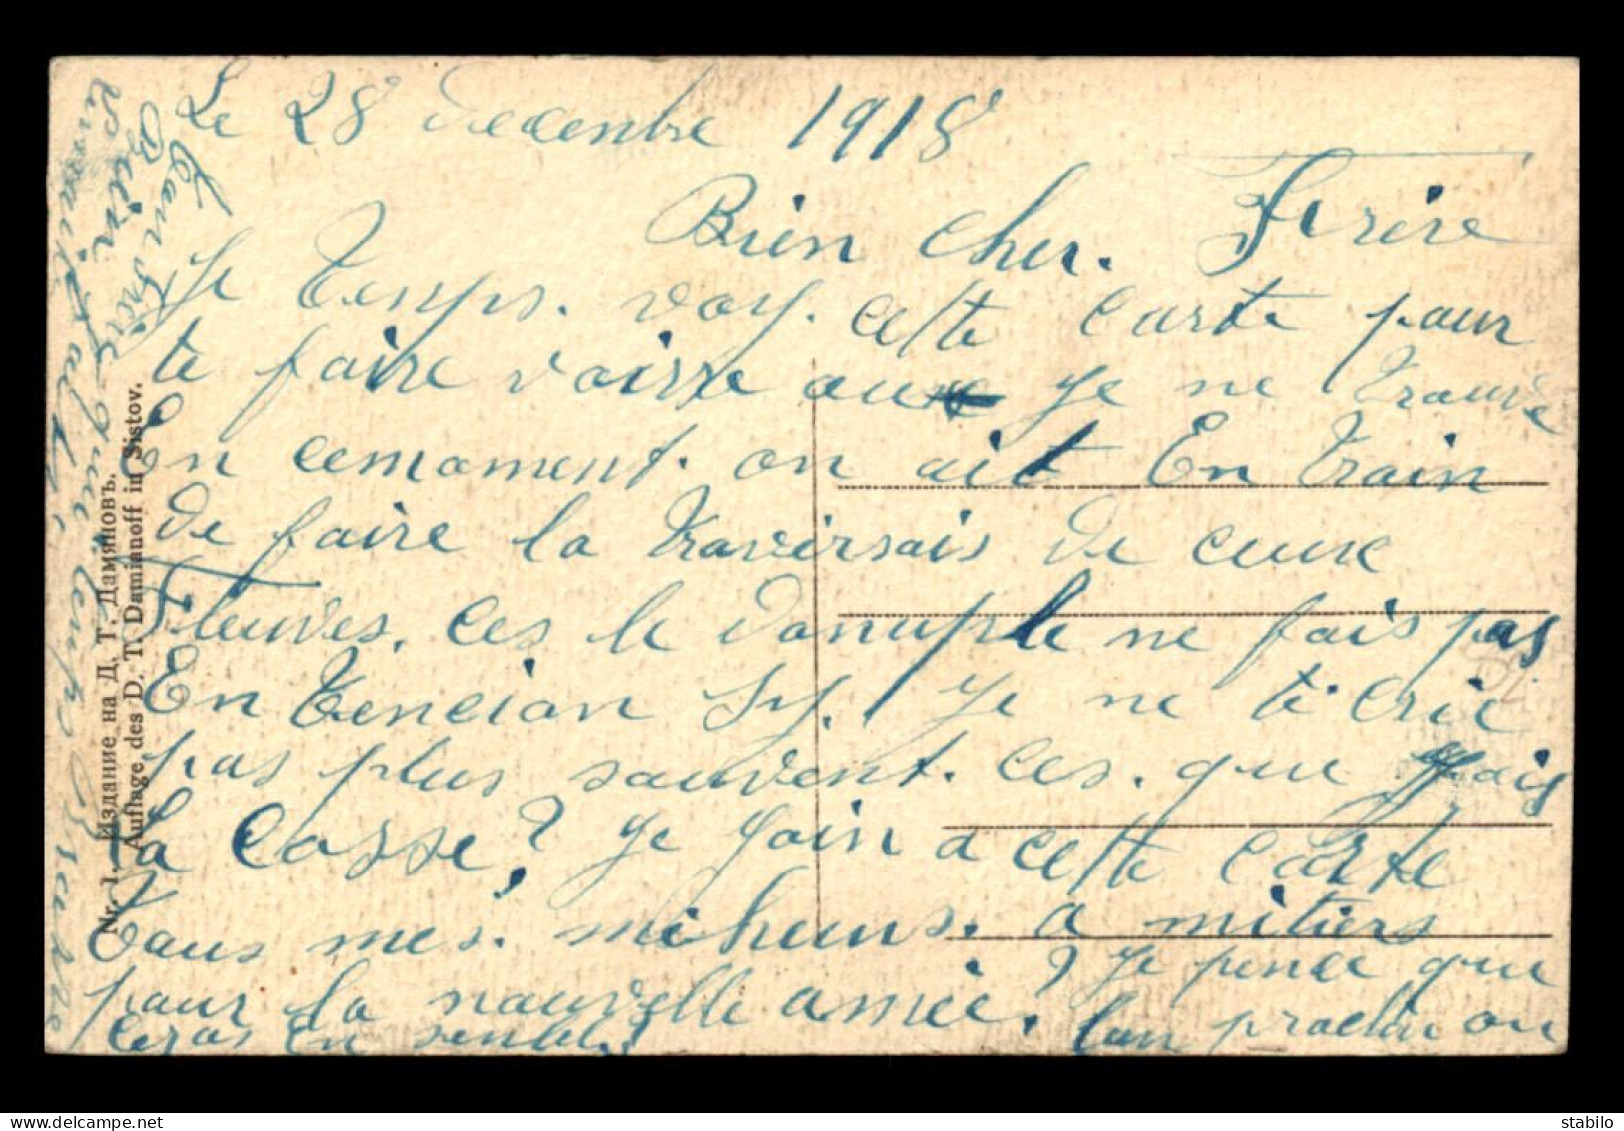 Le 28 decenbre 1918
Bien cher. Frere
Je Temps. voy. cette carte pour
te faire voirre ou Je ne trouve
En cemoment. on ait En train
de faire la traversais de ceux
Fleuves. ces le Donuple ne fais pas
En Tencion sy. Je ne te cris
pas plus souvent. ces. que Jais
La casse? Je Join a cette carte
Tous mes. miheurs. a mitiers
pour la nouvelle annee. ? Je pence que
lan prochin on
ceras En senble
Ton frere qui
Bien
Nr. 1. Издание на Д. Т. Дамяновъ.
Auflage des D. T. Damianoff in Sistov.
stabilo